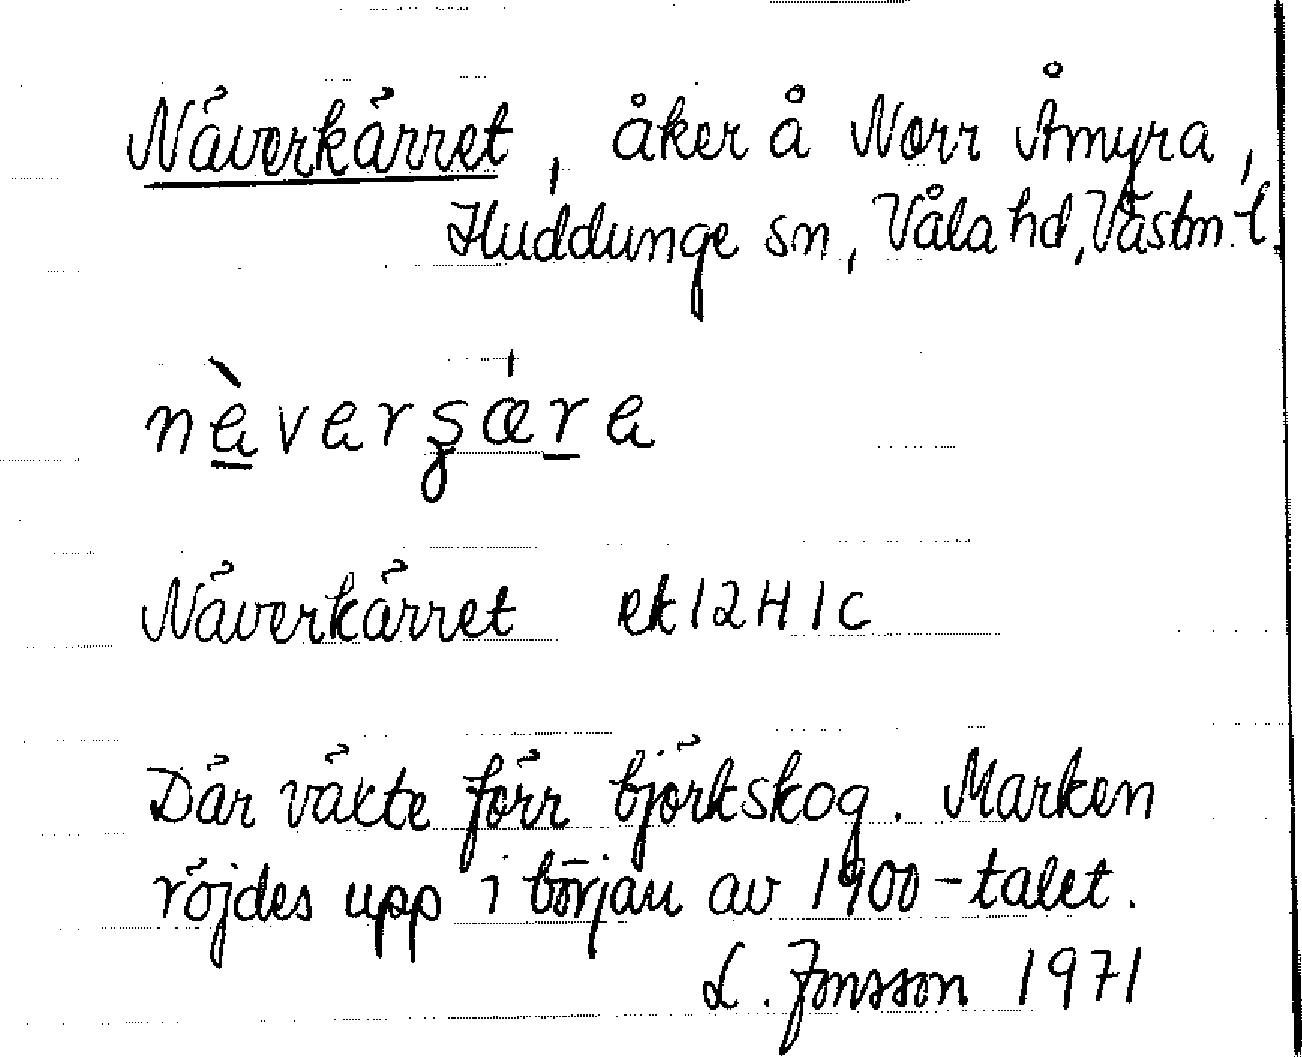 Näverkärret, åker å Norr Åmyra,
Huddunge sn, Våla hd, Västm. l.
Näverkärret ek 12H 1c
Där växte förr björkskog. Marken
röjdes upp i början av 1900-talet.
L. Jonsson 1971